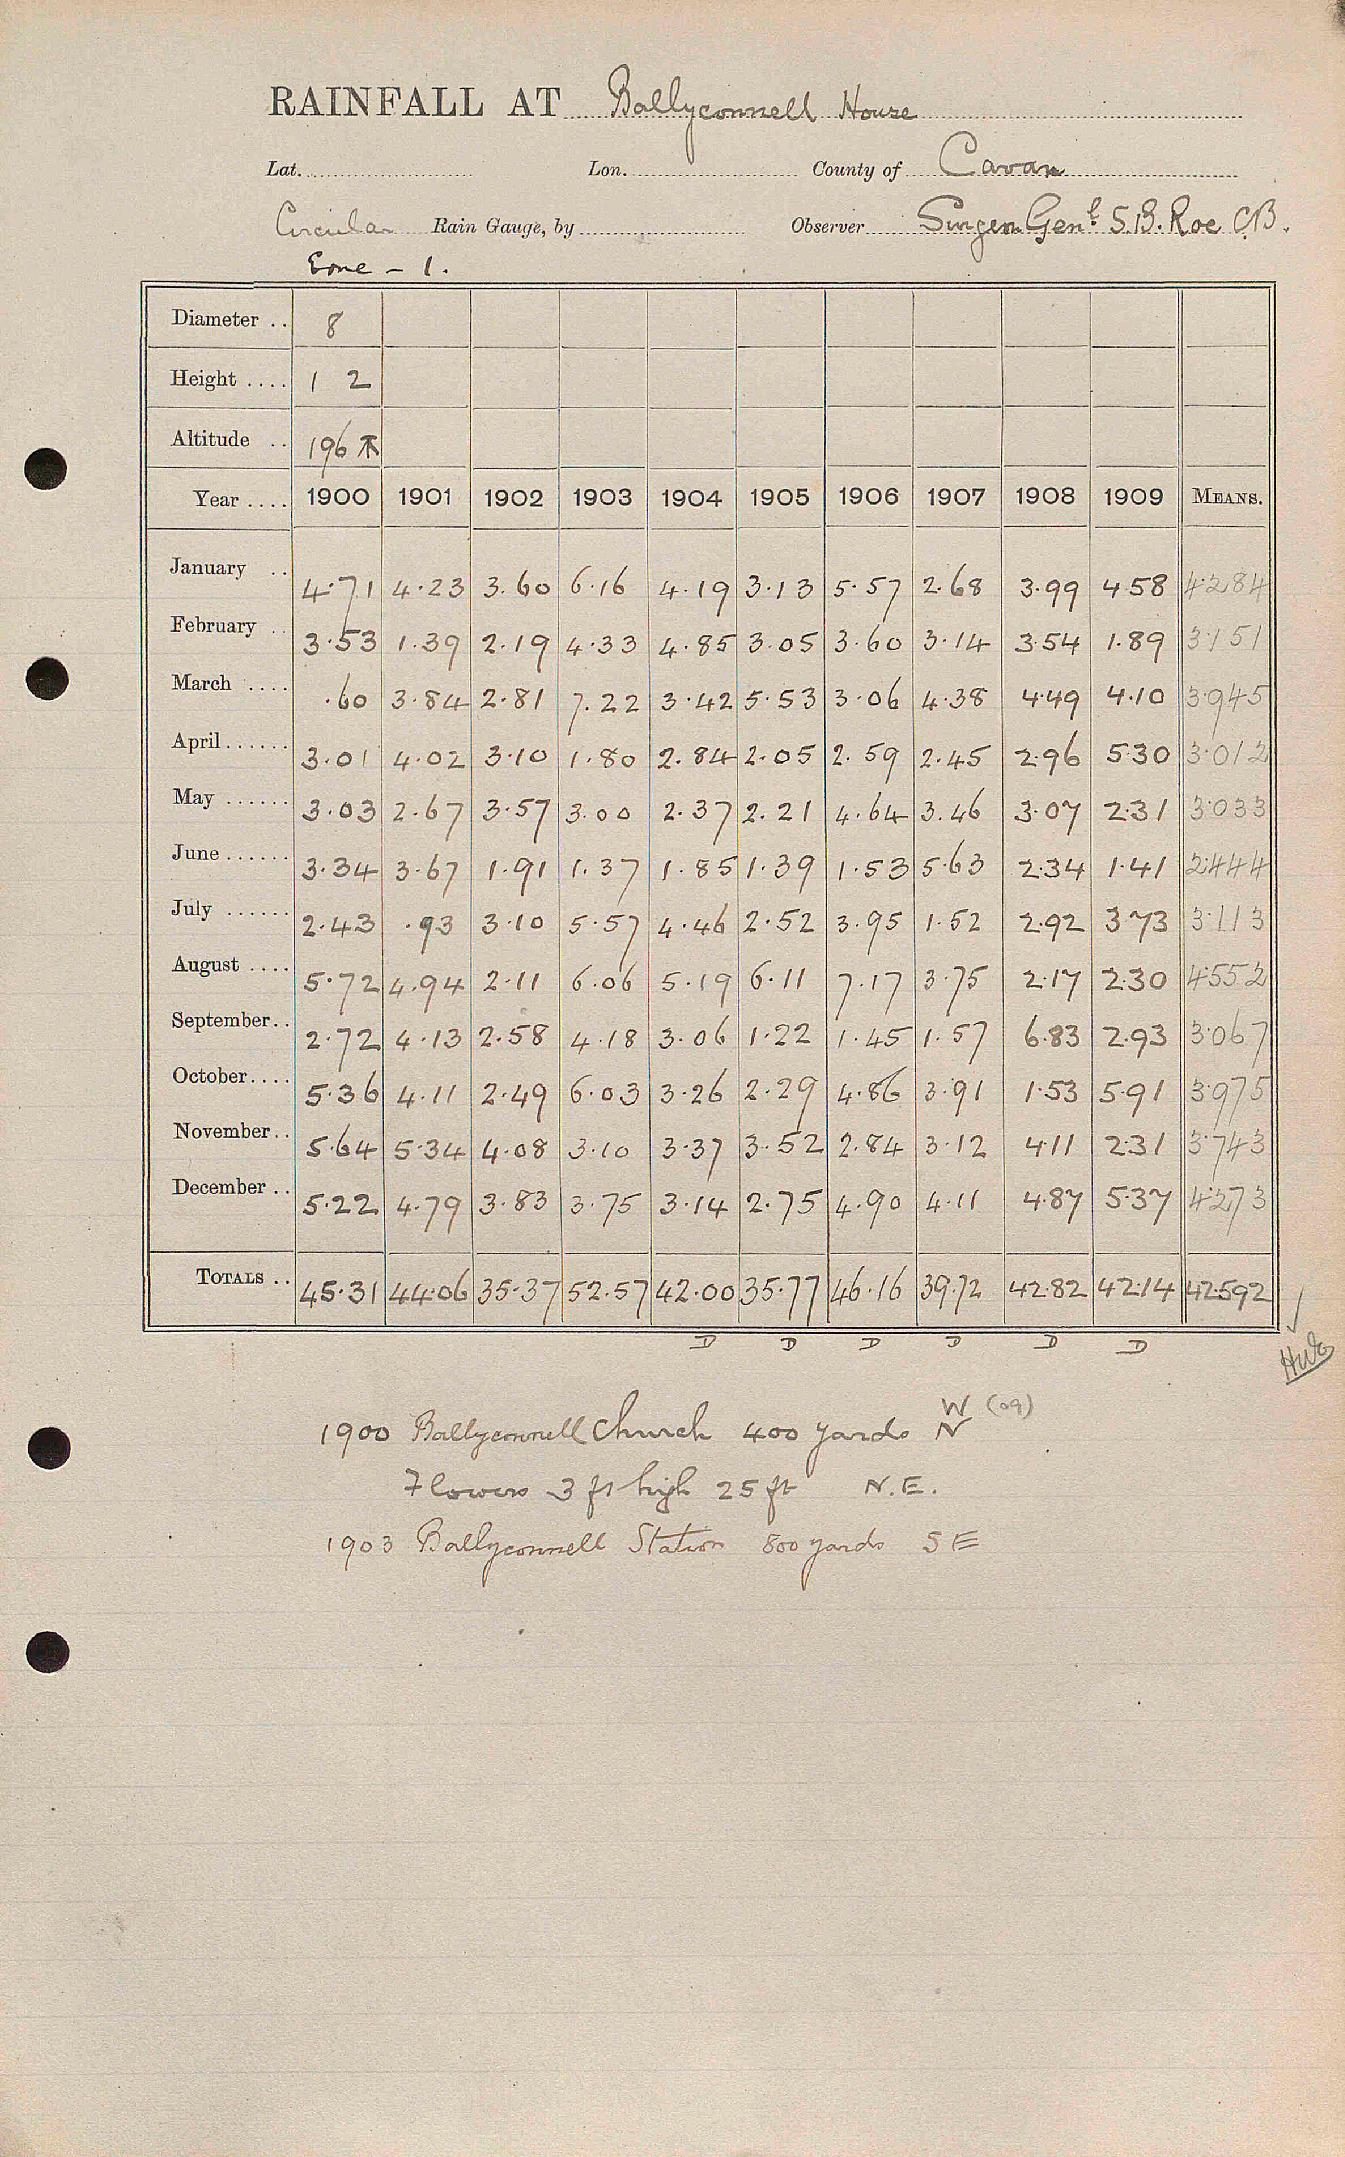 RAINFALL AT Ballyconnell House
Lat. Lon. County of Cavan
Circular Rain Gauge, by Observer Surgeon Genl. S.B. Roe C.B.
Erne - 1.
Diameter .. 8
Height .... 1 2
Altitude .. 196
Year .... 1900 1901 1902 1903 1904 1905 1906 1907 1908 1909 MEANS.
January .. 4.71 4.23 3.60 6.16 4.19 3.13 5.57 2.68 3.99 4.58 4.284
February .. 3.53 1.39 2.19 4.33 4.85 3.05 3.60 3.14 3.54 1.89 3.151
March .... .60 3.84 2.81 7.22 3.42 5.53 3.06 4.38 4.49 4.10 3.945
April...... 3.01 4.02 3.10 1.80 2.84 2.05 2.59 2.45 2.96 5.30 3.012
May ...... 3.03 2.67 3.57 3.00 2.37 2.21 4.64 3.46 3.07 2.31 3.033
June...... 3.34 3.67 1.91 1.37 1.85 1.39 1.53 5.63 2.34 1.41 2.444
July ...... 2.43 .93 3.10 5.57 4.46 2.52 3.95 1.52 2.92 3.73 3.113
August .... 5.72 4.94 2.11 6.06 5.19 6.11 7.17 3.75 2.17 2.30 4.552
September.. 2.72 4.13 2.58 4.18 3.06 1.22 1.45 1.57 6.83 2.93 3.067
October.... 5.36 4.11 2.49 6.03 3.26 2.29 4.86 3.91 1.53 5.91 3.975
November.. 5.64 5.34 4.08 3.10 3.37 3.52 2.84 3.12 4.11 2.31 3.743
December .. 5.22 4.79 3.83 3.75 3.14 2.75 4.90 4.11 4.87 5.37 4.273
TOTALS .. 45.31 44.06 35.37 52.57 42.00 35.77 46.16 39.72 42.82 42.14 42.592
D D D D D D
W (09)
1900 Ballyconnell Church 400 yards N
Flowers 3 ft high 25 ft N.E.
1903 Ballyconnell Station 800 yards S E